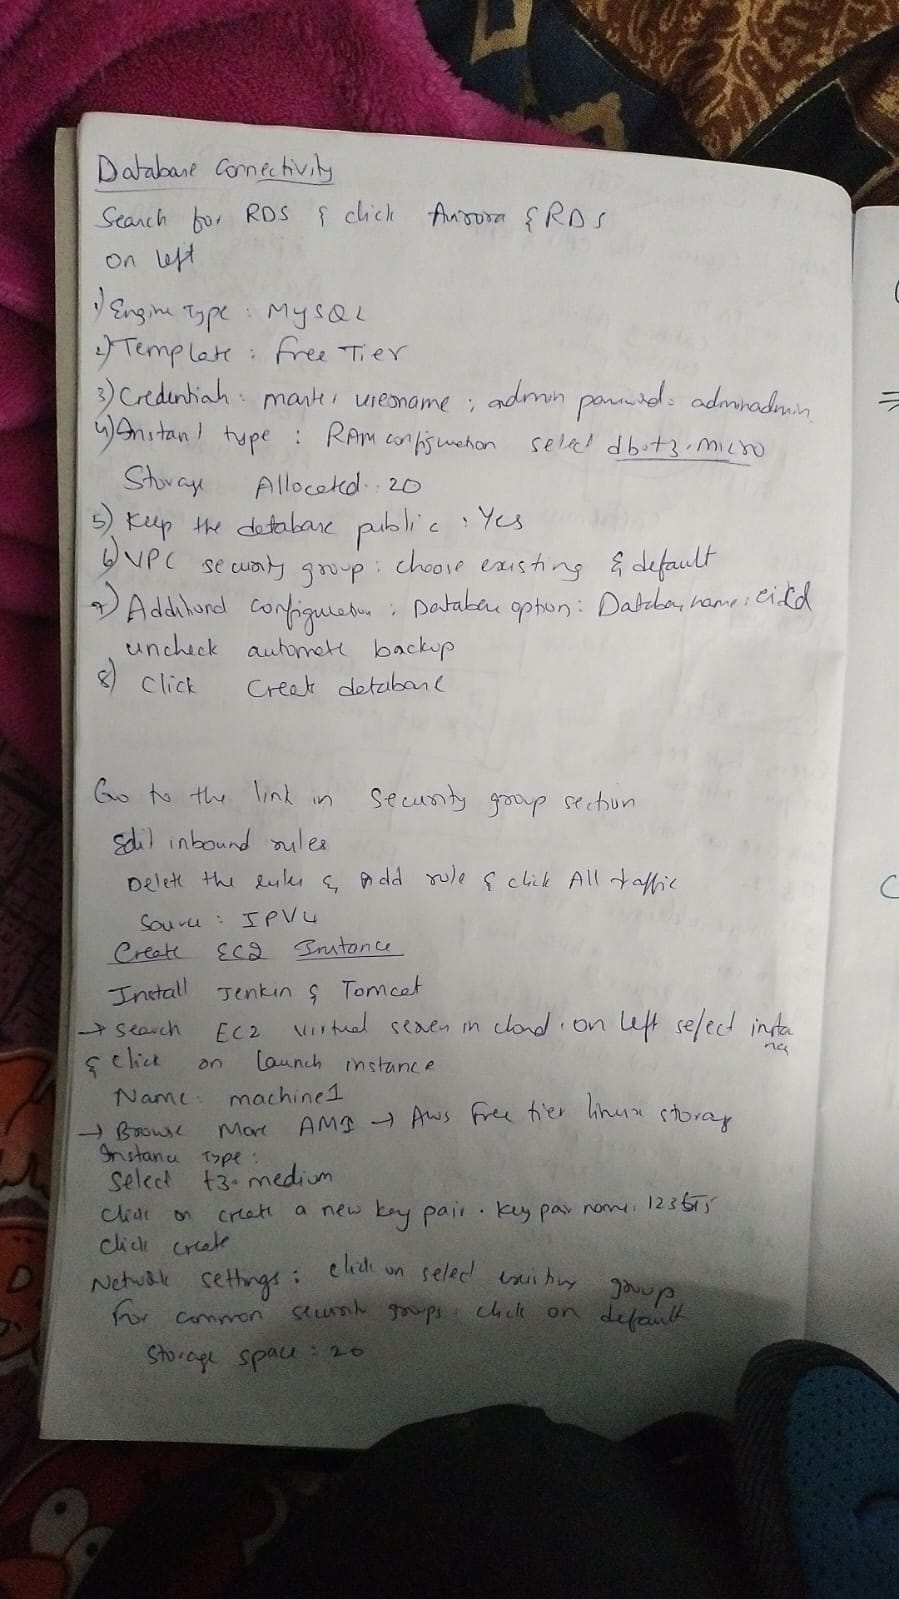 Database Connectivity
Search for RDS & click Aurora & RDS
on left
1) Engine Type : MySQL
2) Template : Free Tier
3) Credential : master username : admin password : adminadmin
4) Instant type : RAM configuration select db.t3.micro
Storage Allocated : 20
5) Keep the database public : Yes
6) VPC security group : choose existing & default
7) Additional configuration : Database option : Database name : cicd
uncheck automate backup
8) Click Create database
Go to the link in Security group section
Edit inbound rules
Delete the rules & Add rule & click All traffic
Source : IPV4
Create EC2 Instance
Install Jenkin & Tomcat
→ Search EC2 virtual server in cloud. on left select instance
& click on launch instance
Name : machine1
→ Browse More AMI → Aws Free tier linux storag
Instance Type :
Select t3.medium
Click on create a new key pair . key pair name :
click create
Network settings : click on select existing group
For common security groups : click on default
Storage space : 20